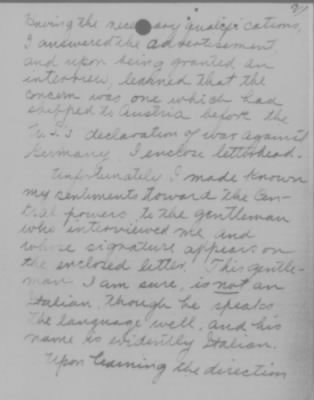 2/
Having the necessary qualifications,
I answered the advertisement
and upon being granted an
interview, learned that the
concern was one which had
shipped to Austria before the
U.S. declaration of war against
Germany. I enclose letterhead.
Unfortunately I made known
my sentiments toward the Cen-
tral powers to the gentleman
who interviewed me and
whose signature appears on
the enclosed letter. This gentle-
man I am sure, is not an
Italian, though he speaks
the language well, and his
name is evidently Italian.
Upon learning the direction